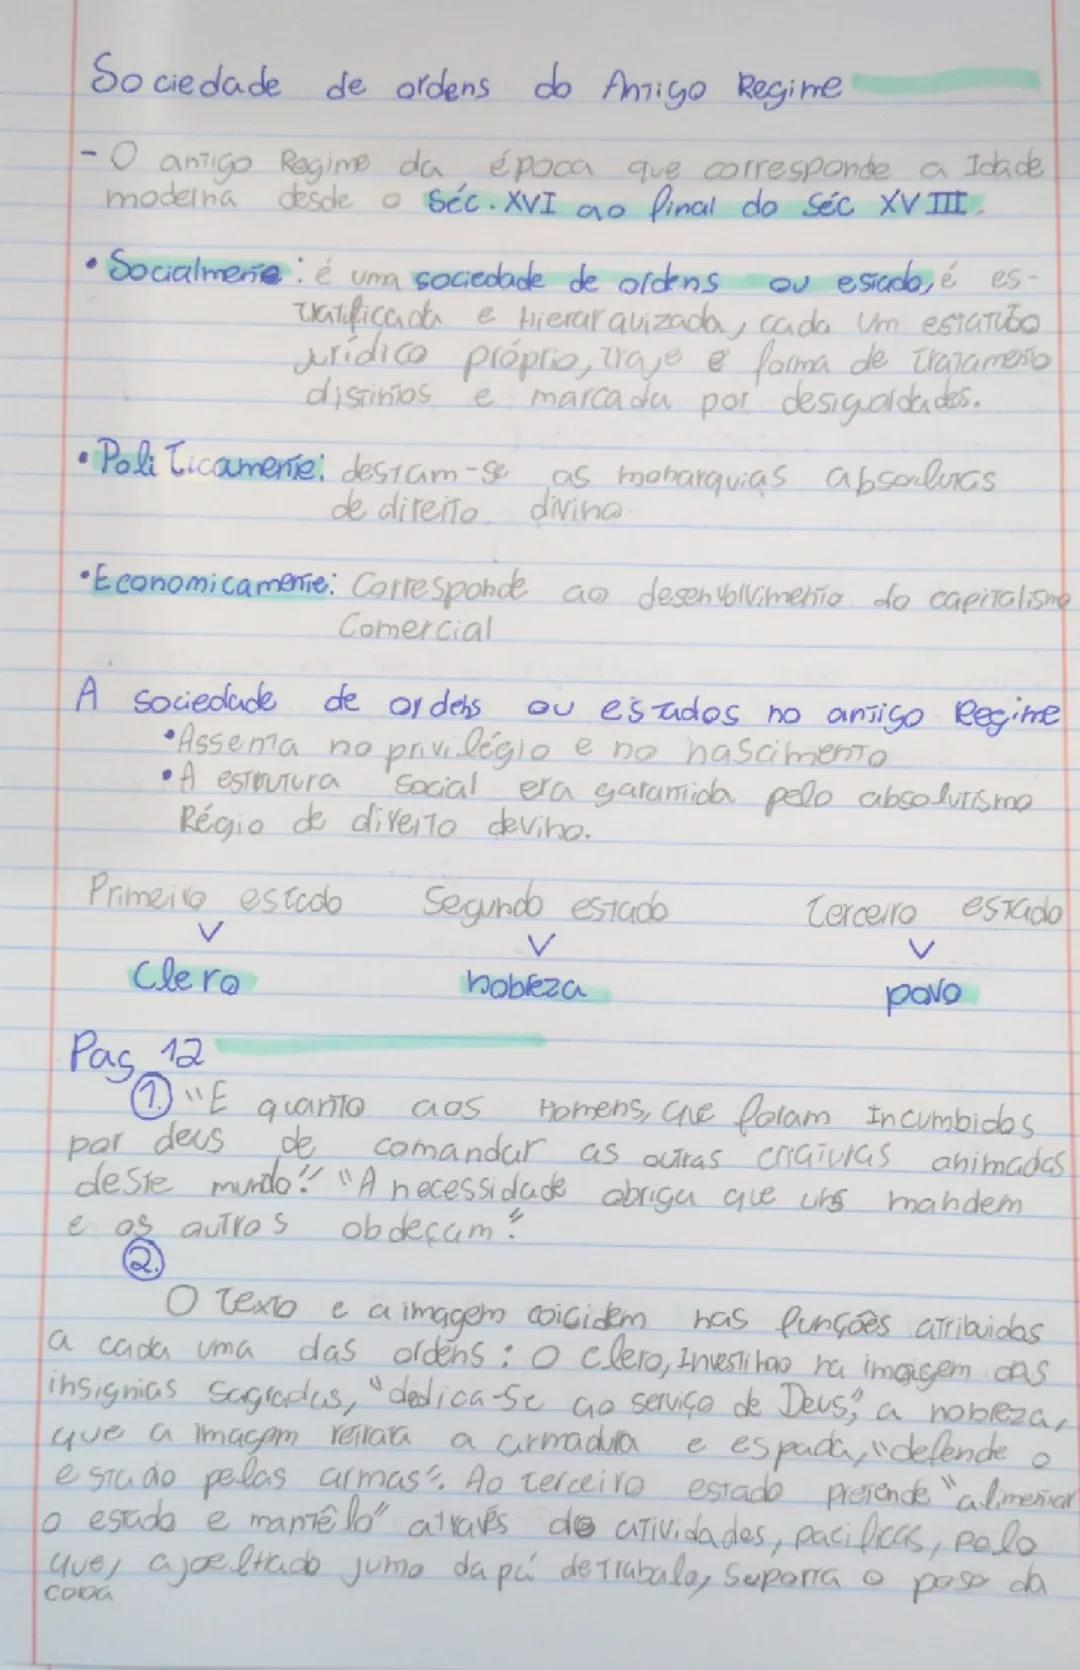 Sociedade de ordens do Antigo Regime
- O antigo Regime da época que corresponde a Idade
moderna desde o Séc. XVI ao final do séc XVIII.
• Socialmente: é uma sociedade de ordens ou estado, é es-
tratificada e Hierarquizada, cada um estatuto
jurídico próprio, traje e forma de tratamento
distintos e marcada por desigualdades.
• Politicamente: destam-se as monarquias absolutas
de direito divino.
• Economicamente: Corresponde ao desenvolvimento do capitalismo
Comercial
A sociedade de ordens ou estados no antigo Regime
• Assenta no privilégio e no nascimento
• A estrutura social era garantida pelo absolutismo
Régio de direito devino.
Primeiro estado Segundo estado Terceiro estado
Clero nobreza povo
Pag 12
1. "E quanto aos Homens, que foram Incumbidos
por deus de comandar as outras criaturas animadas
deste mundo." "A necessidade obriga que uns mandem
e os outros obdeçam".
2.
O texto e a imagem coicidem nas funções atribuidas
a cada uma das ordens: O clero, na imagem das
insignias Sagradas, "dedica-se ao serviço de Deus", a nobreza,
que a imagem retrata a armadura e espada, "defende o
estado pelas armas". Ao terceiro estado pretende "alimentar
o estado e mantê-lo" através de atividades, pacificas, pelo
que, ajoelhado junto da pá de trabalo, Suporta o peso da
coroa